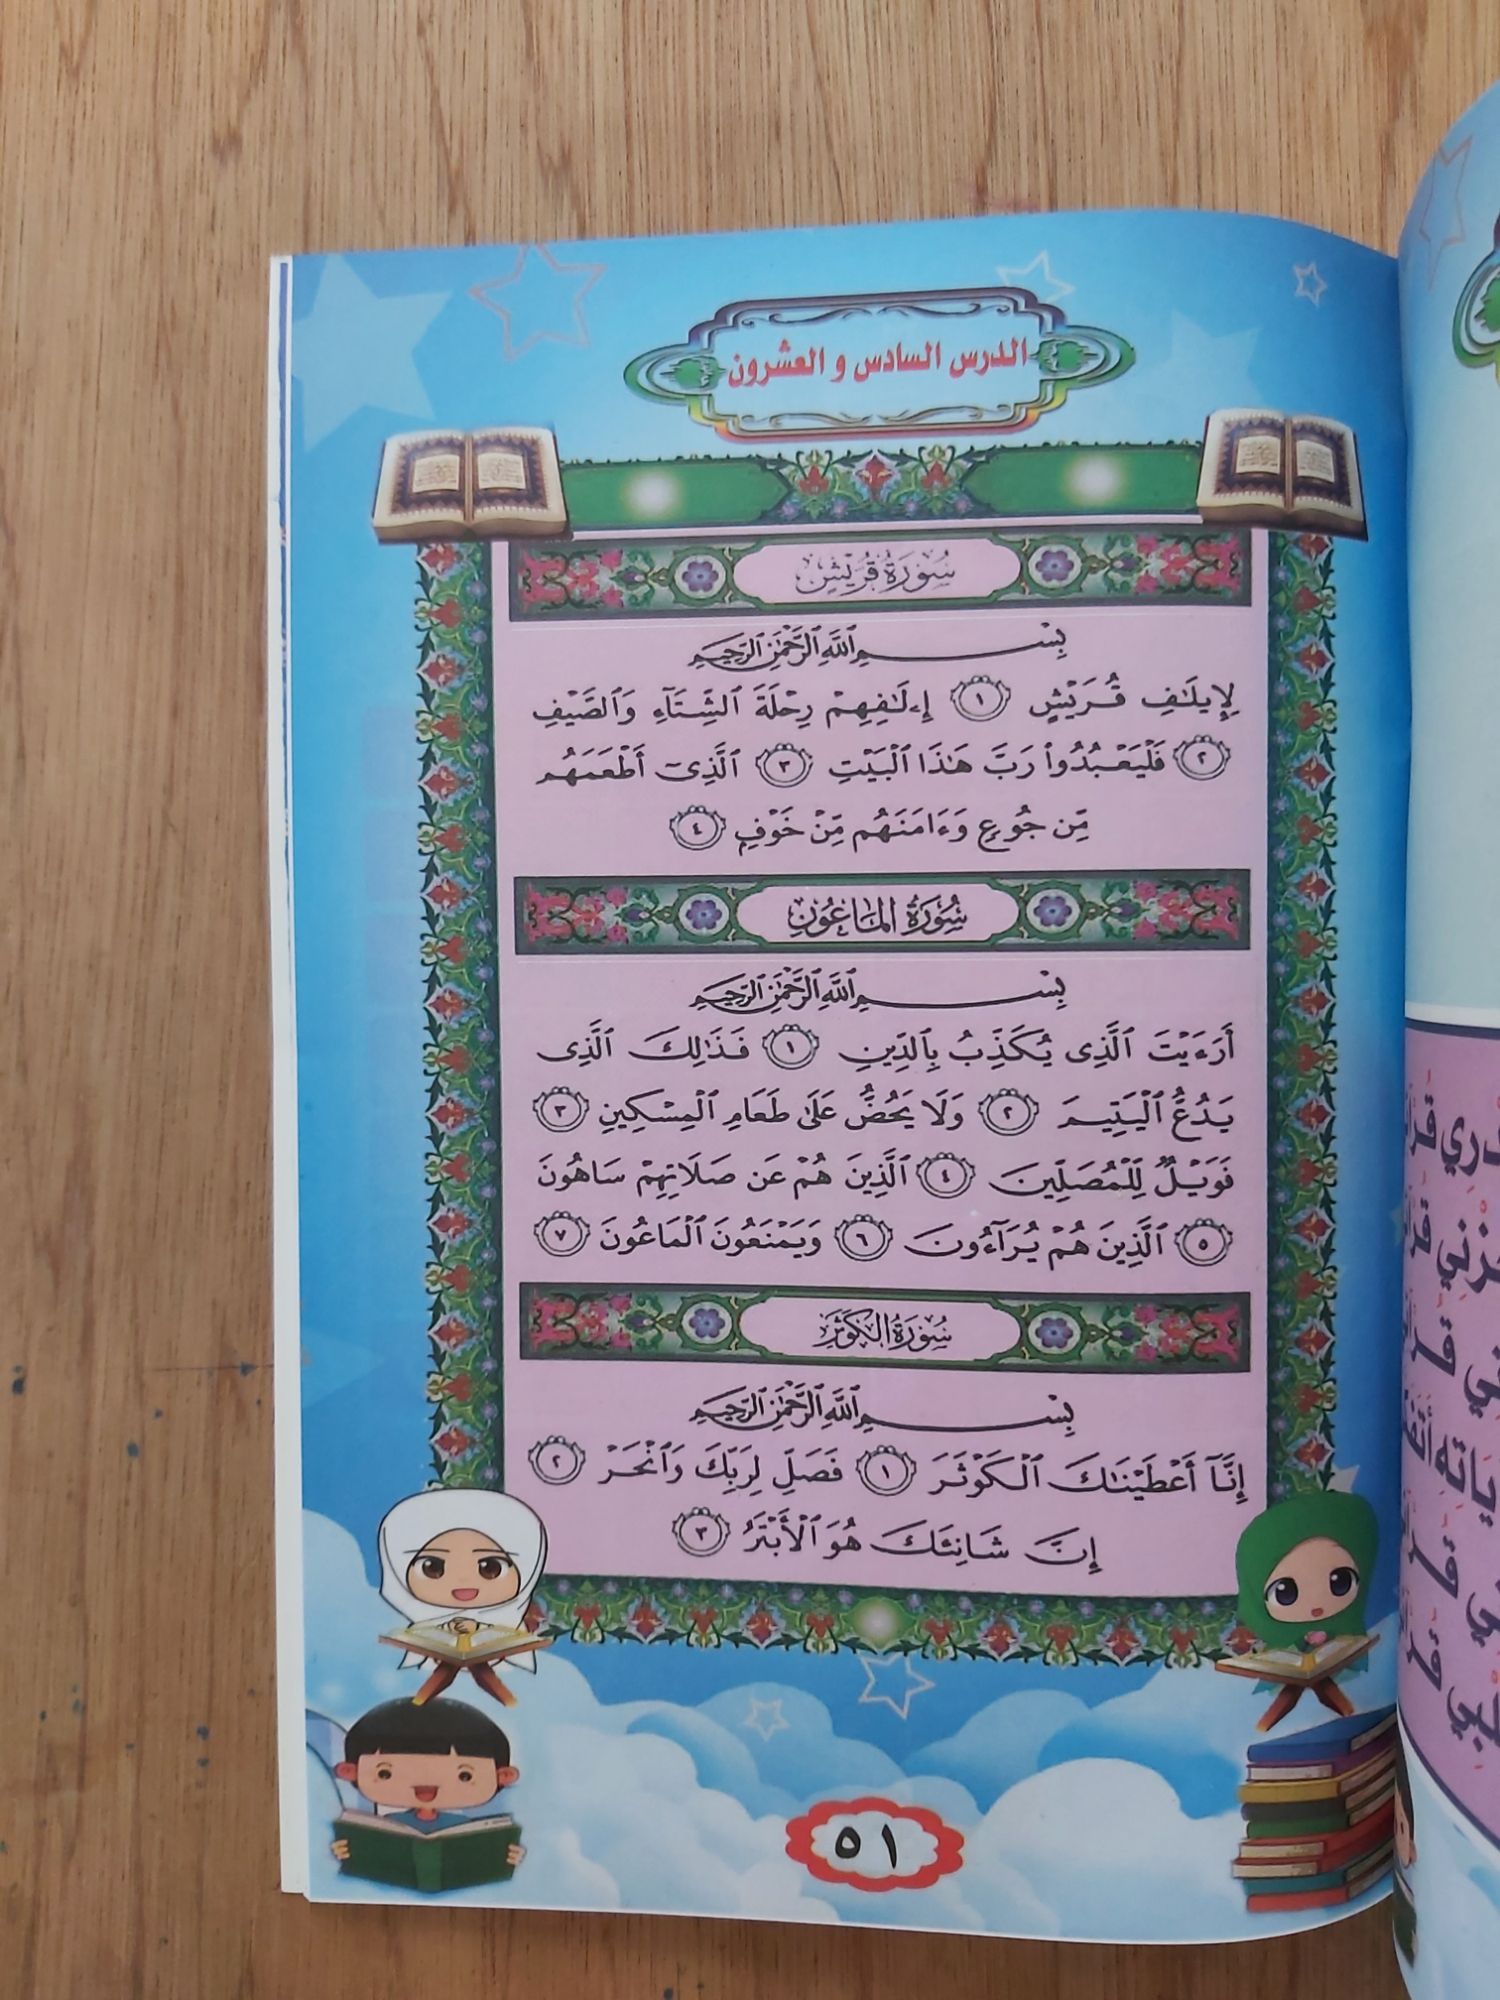 الدرس السادس و العشرون
سُورَةُ قُرَيْشٍ
بِسْمِ ٱللَّهِ ٱلرَّحْمَٰنِ ٱلرَّحِيمِ
لِإِيلَٰفِ قُرَيْشٍ ١ إِۦلَٰفِهِمْ رِحْلَةَ ٱلشِّتَآءِ وَٱلصَّيْفِ
٢ فَلْيَعْبُدُواْ رَبَّ هَٰذَا ٱلْبَيْتِ ٣ ٱلَّذِىٓ أَطْعَمَهُم
مِّن جُوعٍ وَءَامَنَهُم مِّنْ خَوْفٍ ٤
سُورَةُ المَاعُونِ
بِسْمِ ٱللَّهِ ٱلرَّحْمَٰنِ ٱلرَّحِيمِ
أَرَءَيْتَ ٱلَّذِى يُكَذِّبُ بِٱلدِّينِ ١ فَذَٰلِكَ ٱلَّذِى
يَدُعُّ ٱلْيَتِيمَ ٢ وَلَا يَحُضُّ عَلَىٰ طَعَامِ ٱلْمِسْكِينِ ٣
فَوَيْلٌ لِّلْمُصَلِّينَ ٤ ٱلَّذِينَ هُمْ عَن صَلَاتِهِمْ سَاهُونَ
٥ ٱلَّذِينَ هُمْ يُرَآءُونَ ٦ وَيَمْنَعُونَ ٱلْمَاعُونَ ٧
سُورَةُ الكَوْثَرِ
بِسْمِ ٱللَّهِ ٱلرَّحْمَٰنِ ٱلرَّحِيمِ
إِنَّآ أَعْطَيْنَٰكَ ٱلْكَوْثَرَ ١ فَصَلِّ لِرَبِّكَ وَٱنْحَرْ ٢
إِنَّ شَانِئَكَ هُوَ ٱلْأَبْتَرُ ٣
٥١